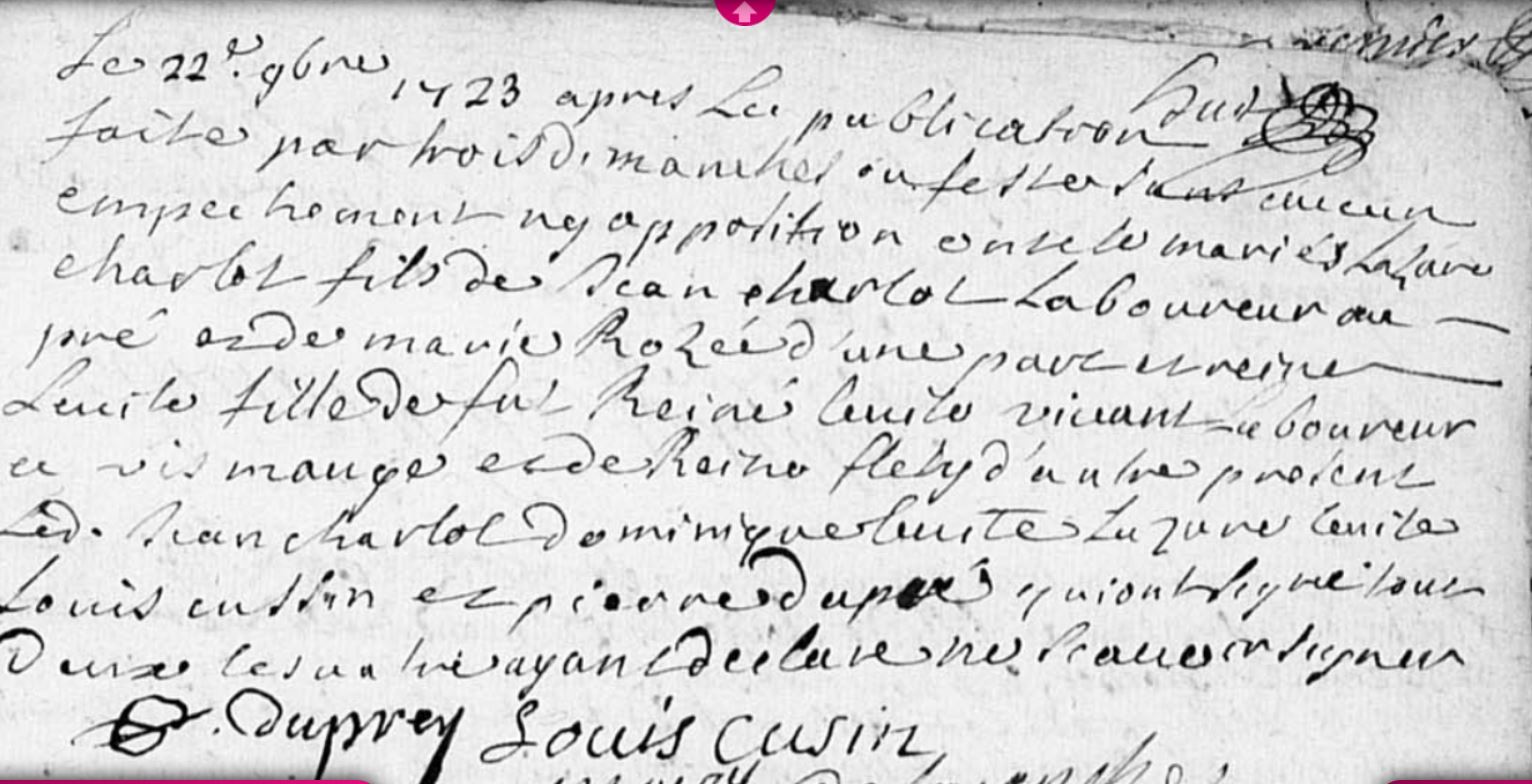 Le 22e. 9bre 1723 apres La publication
faite par trois dimanches ou festes sans aucun
empechement ny apposition ont ete mariés Lazare
charlot fils de Jean charlot Laboureur au
pré et de marie Rozée d'une part et reine
Leuite fille de fut Reiné leuite vivant Laboureur
a vismange et de Reine flety d'autre present
Led. Jean charlot dominique leuite Lazare leuite
Louis cussin et pierre dupré qui ont signé tout
Deux les autre ayant declare ne scauoir signer
duprey Louis Cusin